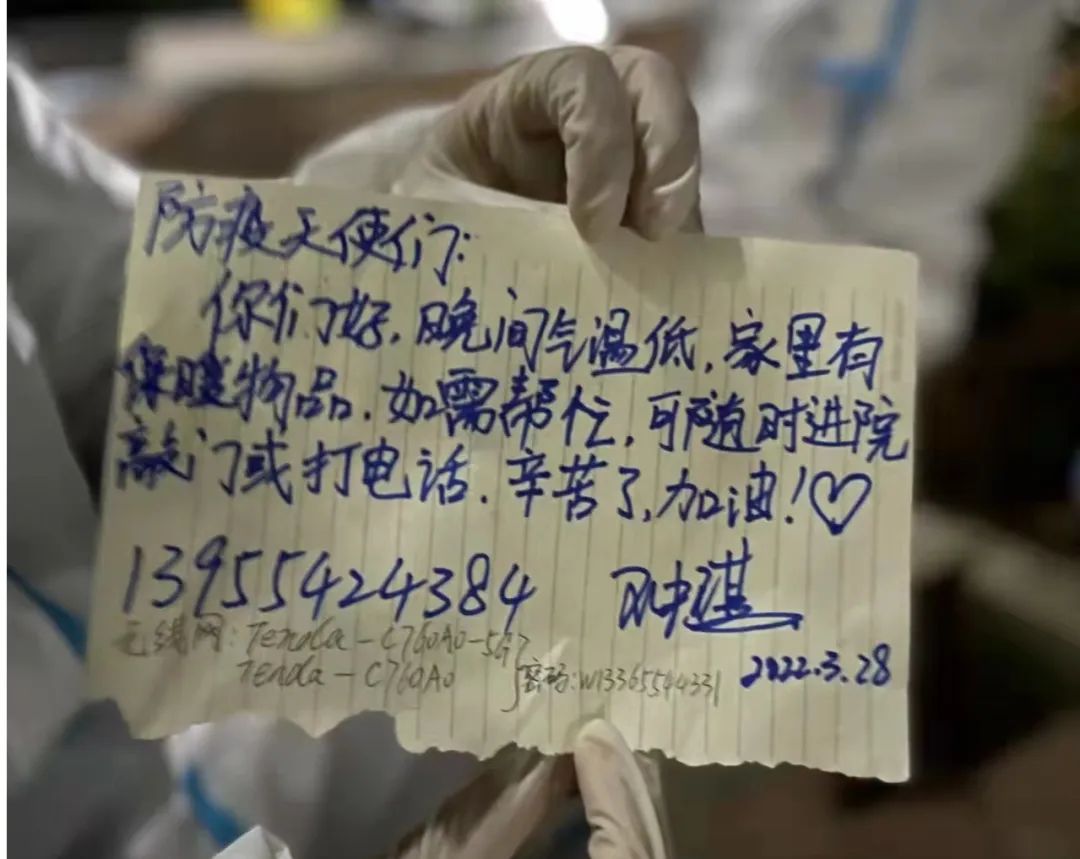 防疫天使们:
你们好,晚间气温低,家里有
保暖物品,如需帮忙,可随时进院
敲门或打电话.辛苦了,加油!♡
13955424384
无线网:Tenda-C760A0-5G
Tenda-C760A0
密码:W13365544331
2022.3.28